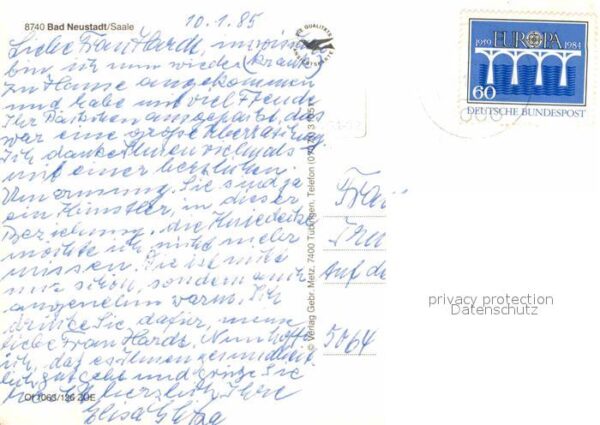 8740 Bad Neustadt/Saale
10.1.85
Liebe Frau Hardt, inzwischen
bin ich nun wieder (krank)
zu Hause angekommen
und habe mit viel Freude
Ihr Päckchen ausgepackt, das
war eine große Überraschung.
Ich danke Ihnen vielmals
mit einer herzlichen
Umarmung. Sie sind ja
ein Künstler, in dieser
Beziehung. die Kniedecke
möchte ich nicht mehr
missen. Sie ist nicht
nur schön, sondern auch
angenehm warm. Ich
drücke Sie dafür, meine
liebe Frau Hardt. Nun hoffe
ich, das es Ihnen
gut geht und grüße Sie
herzlich Ihre
Elisa
Of 1063/136 ZOE
© Verlag Gebr. Metz, 7400 Tübingen, Telefon
QUALITÄTS
1959 EUROPA 1984
60
DEUTSCHE BUNDESPOST
Frau
Auf de
5064
privacy protection
Datenschutz